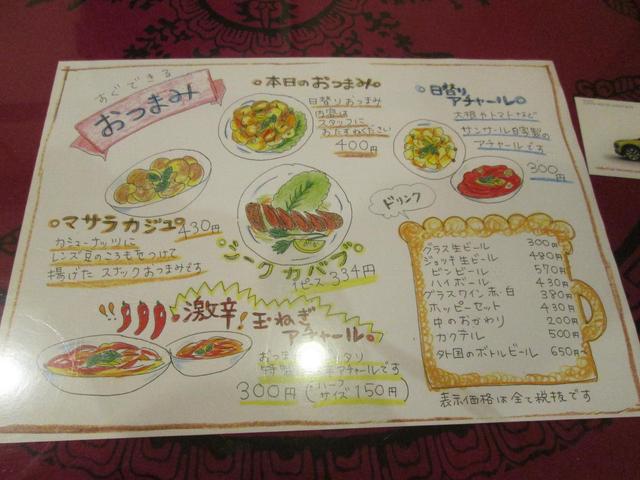 すぐできる
おつまみ
本日のおつまみ
日替りおつまみ
内容は
スタッフに
おたずねください
400円
日替り
アチャール
大根やトマトなど
サンサール自家製の
アチャールです
300円
マサラカジュ 430円
カシューナッツに
レンズ豆のころもをつけて
揚げた スナックおつまみです
シークカバブ
1ピース 334円
!!激辛!玉ねぎ
アチャール
おつま
特
アチャールです
300円 (ハーフサイズ 150円)
ドリンク
グラス生ビール 300円
ジョッキ生ビール 480円
ビンビール 570円
ハイボール 430円
グラスワイン 赤・白 380円
ホッピーセット 430円
中のおかわり 200円
カクテル 500円
外国のボトルビール 650円~
表示価格は全て税抜です